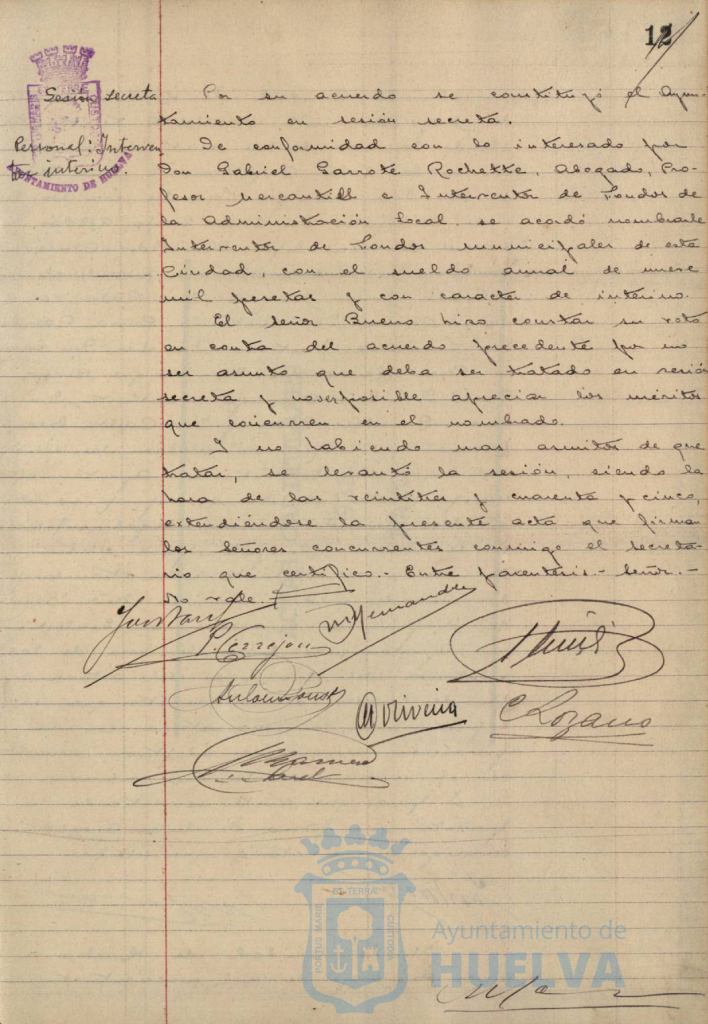 12
Sesión secreta
Personal: Interven
tor interino.
AYUNTAMIENTO DE HUELVA
Por su acuerdo se constituyó el Ayun-
tamiento en sesión secreta.
De conformidad con lo interesado por
Don Gabriel Garrote Rochette, Abogado, Pro-
fesor mercantil e Interventor de Fondos de
la Administración Local se acordó nombrarle
Interventor de Fondos municipales de esta
Ciudad, con el sueldo anual de nueve
mil pesetas y con caracter de interino.
El señor Bueno hizo constar su voto
en contra del acuerdo precedente por no
ser asunto que deba ser tratado en sesión
secreta y no ser posible apreciar los méritos
que concurren en el nombrado.
Y no habiendo mas asuntos de que
tratar, se levantó la sesión, siendo la
hora de las veintitres y cuarenta y cinco,
extendiéndose la presente acta que firman
los Señores concurrentes conmigo el secreta-
rio que certifico.- Entre parentesis.- Señor.-
No vale.
P. Cerrejon
M Hernandez
M Oliveira
C Lozano
PORTUS MARIS
ET TERRAE
CUSTODIA
Ayuntamiento de
HUELVA